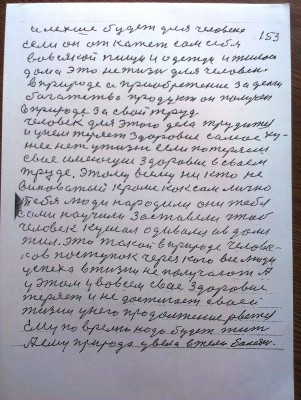 153
и легше будет для человека
если он откажет сам себя
во всякой пищи и одежды и жилого
дома Это не жизня для человека
в природе а приобретение за деньги
богатство продукт он получает
в природе за свой труд.
Человек для этого дела трудится
и у нем теряет здоровье самое ху-
жее нет у жизни если потеряем
свое имеющие здоровье в своем
труде, этому всему ни кто не
виноватый кроме как сам лично
тебя люди народили они тебя
сами научили заставели чтоб
человек кушал одивался и в доме
жил. Это такой в природе челове-
ков поступок через кого все люди
успеха в жизни не получают А
у этом у во всем свае здоровие
теряет и не достигает своей
жизни у него продолжение рвется
Ему по времю надо будет жит
А ему природа увела в тели болезн.